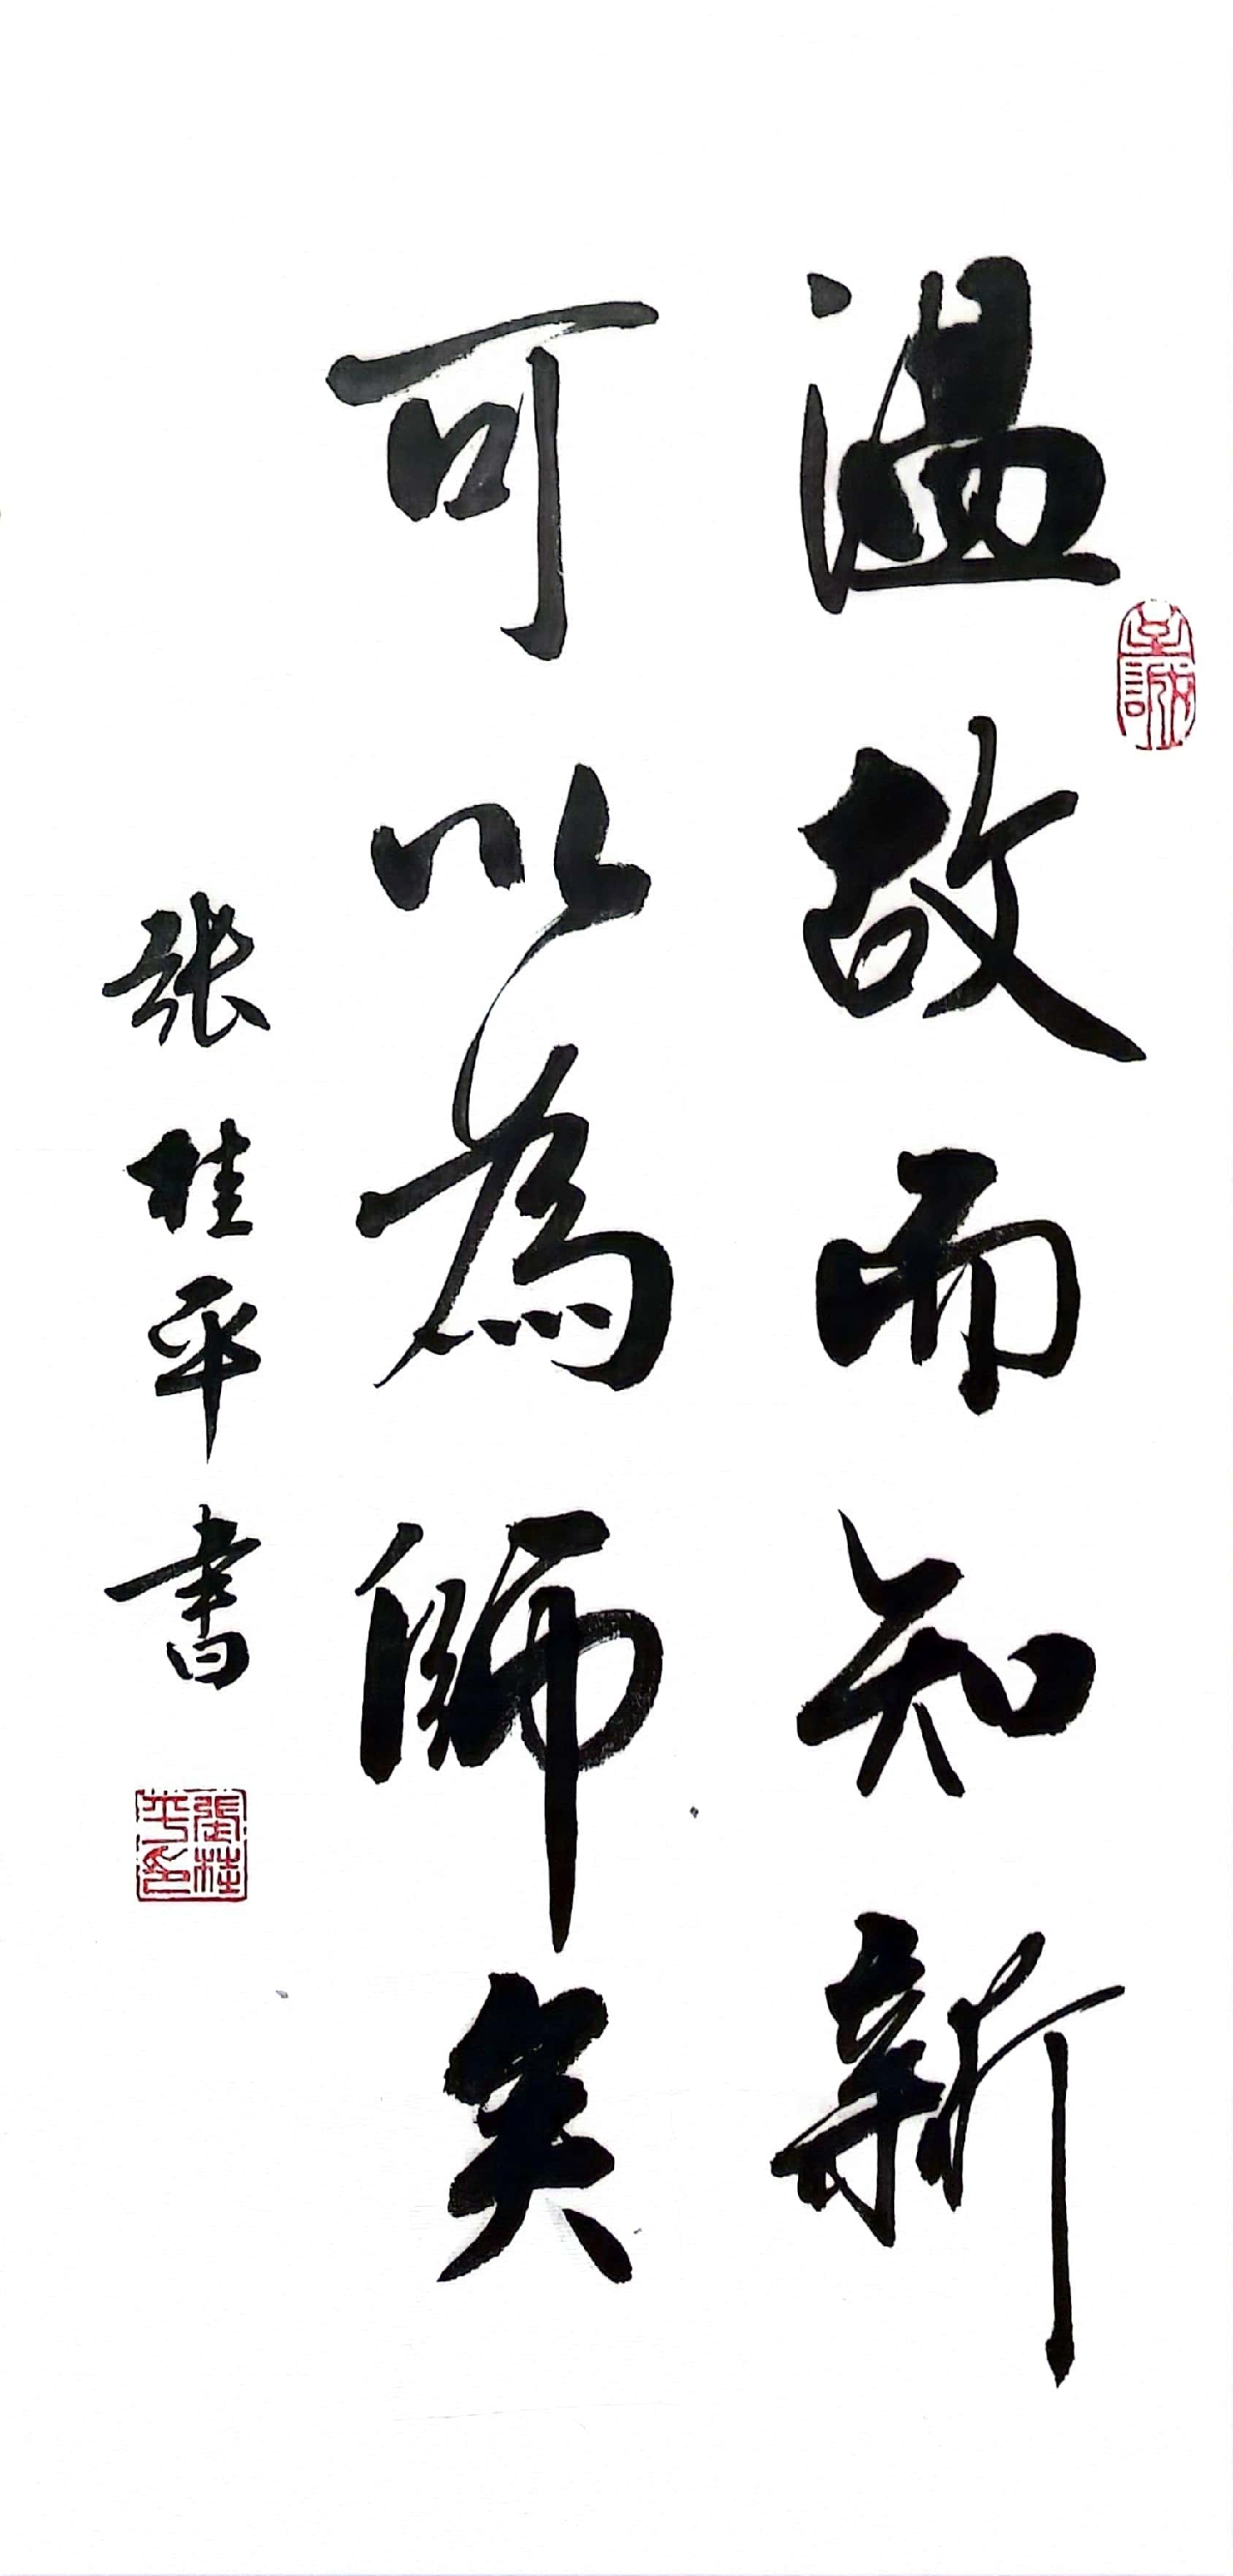 溫故而知新
可以為師矣
張桂平書
至誠
張桂平印